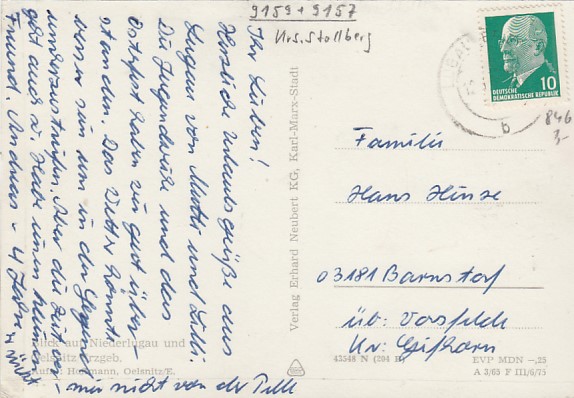 9159 + 9157
Krs. Stollberg
Ihr Lieben!
Herzliche Urlaubsgrüße aus
Lugau von Mutti und
Die Jugendweihe und das
Osterfest haben wir gut über-
standen. Das Wetter könnte
besser sein um in der Gegend
Aber die Kinder
gibt auch v. Heute einen kleinen
Freund. Andreas - 4 Jahre
u. rückt
mir nicht von der Pelle
DEUTSCHE
DEMOKRATISCHE REPUBLIK
10
b
846
3,-
Familie
Hans Hinze
03181 Barnstorf
üb. Vorsfelde
Kr. Gifhorn
Verlag Erhard Neubert KG, Karl-Marx-Stadt
Blick auf Niederlugau und
Oelsnitz/Erzgeb.
Aufn.: Hoffmann, Oelsnitz/E.
43548 N (204 H)
EVP MDN -,25
A 3/65 F III/6/75